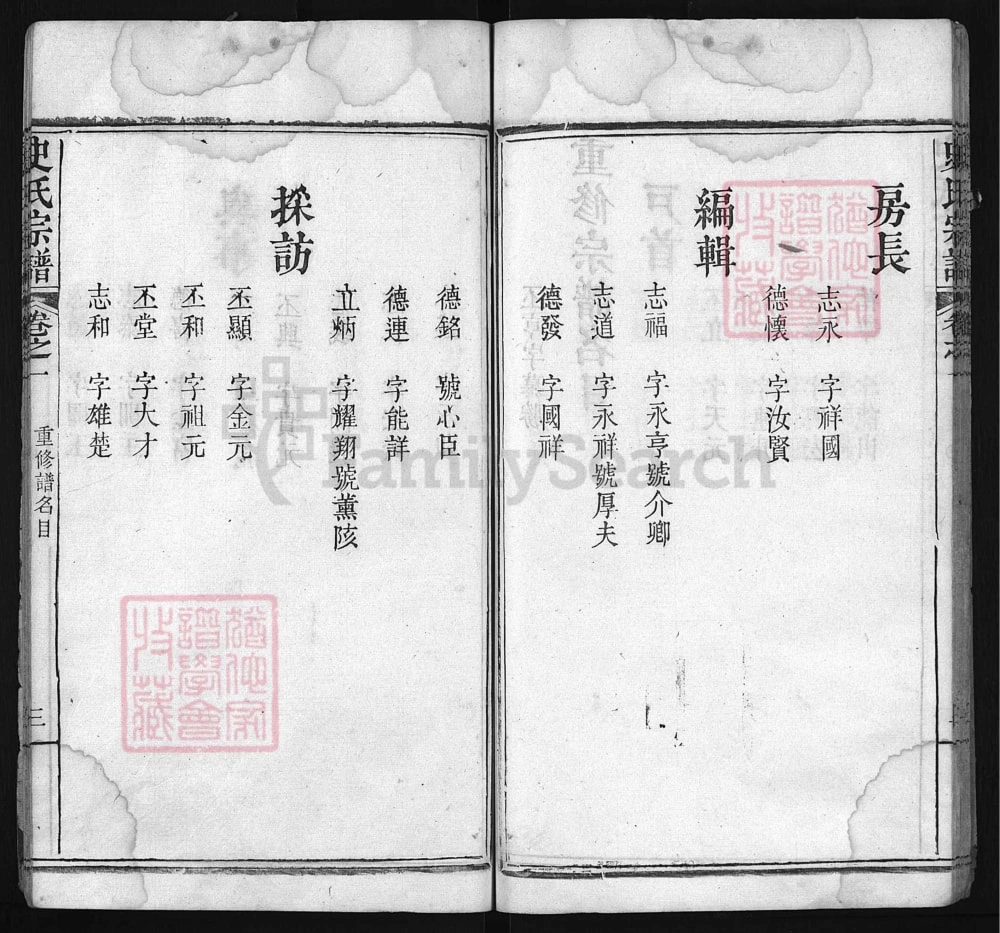 房長
志永 字祥國
德懷 字汝賢
編輯
志福 字永亨號介卿
志道 字永祥號厚夫
德發 字國祥
德銘 號心臣
德連 字能詳
立炳 字耀翔號薰陔
採訪
丕顯 字金元
丕和 字祖元
丕堂 字大才
志和 字雄楚
史氏宗譜
卷之一
重修譜名目
三
FamilySearch